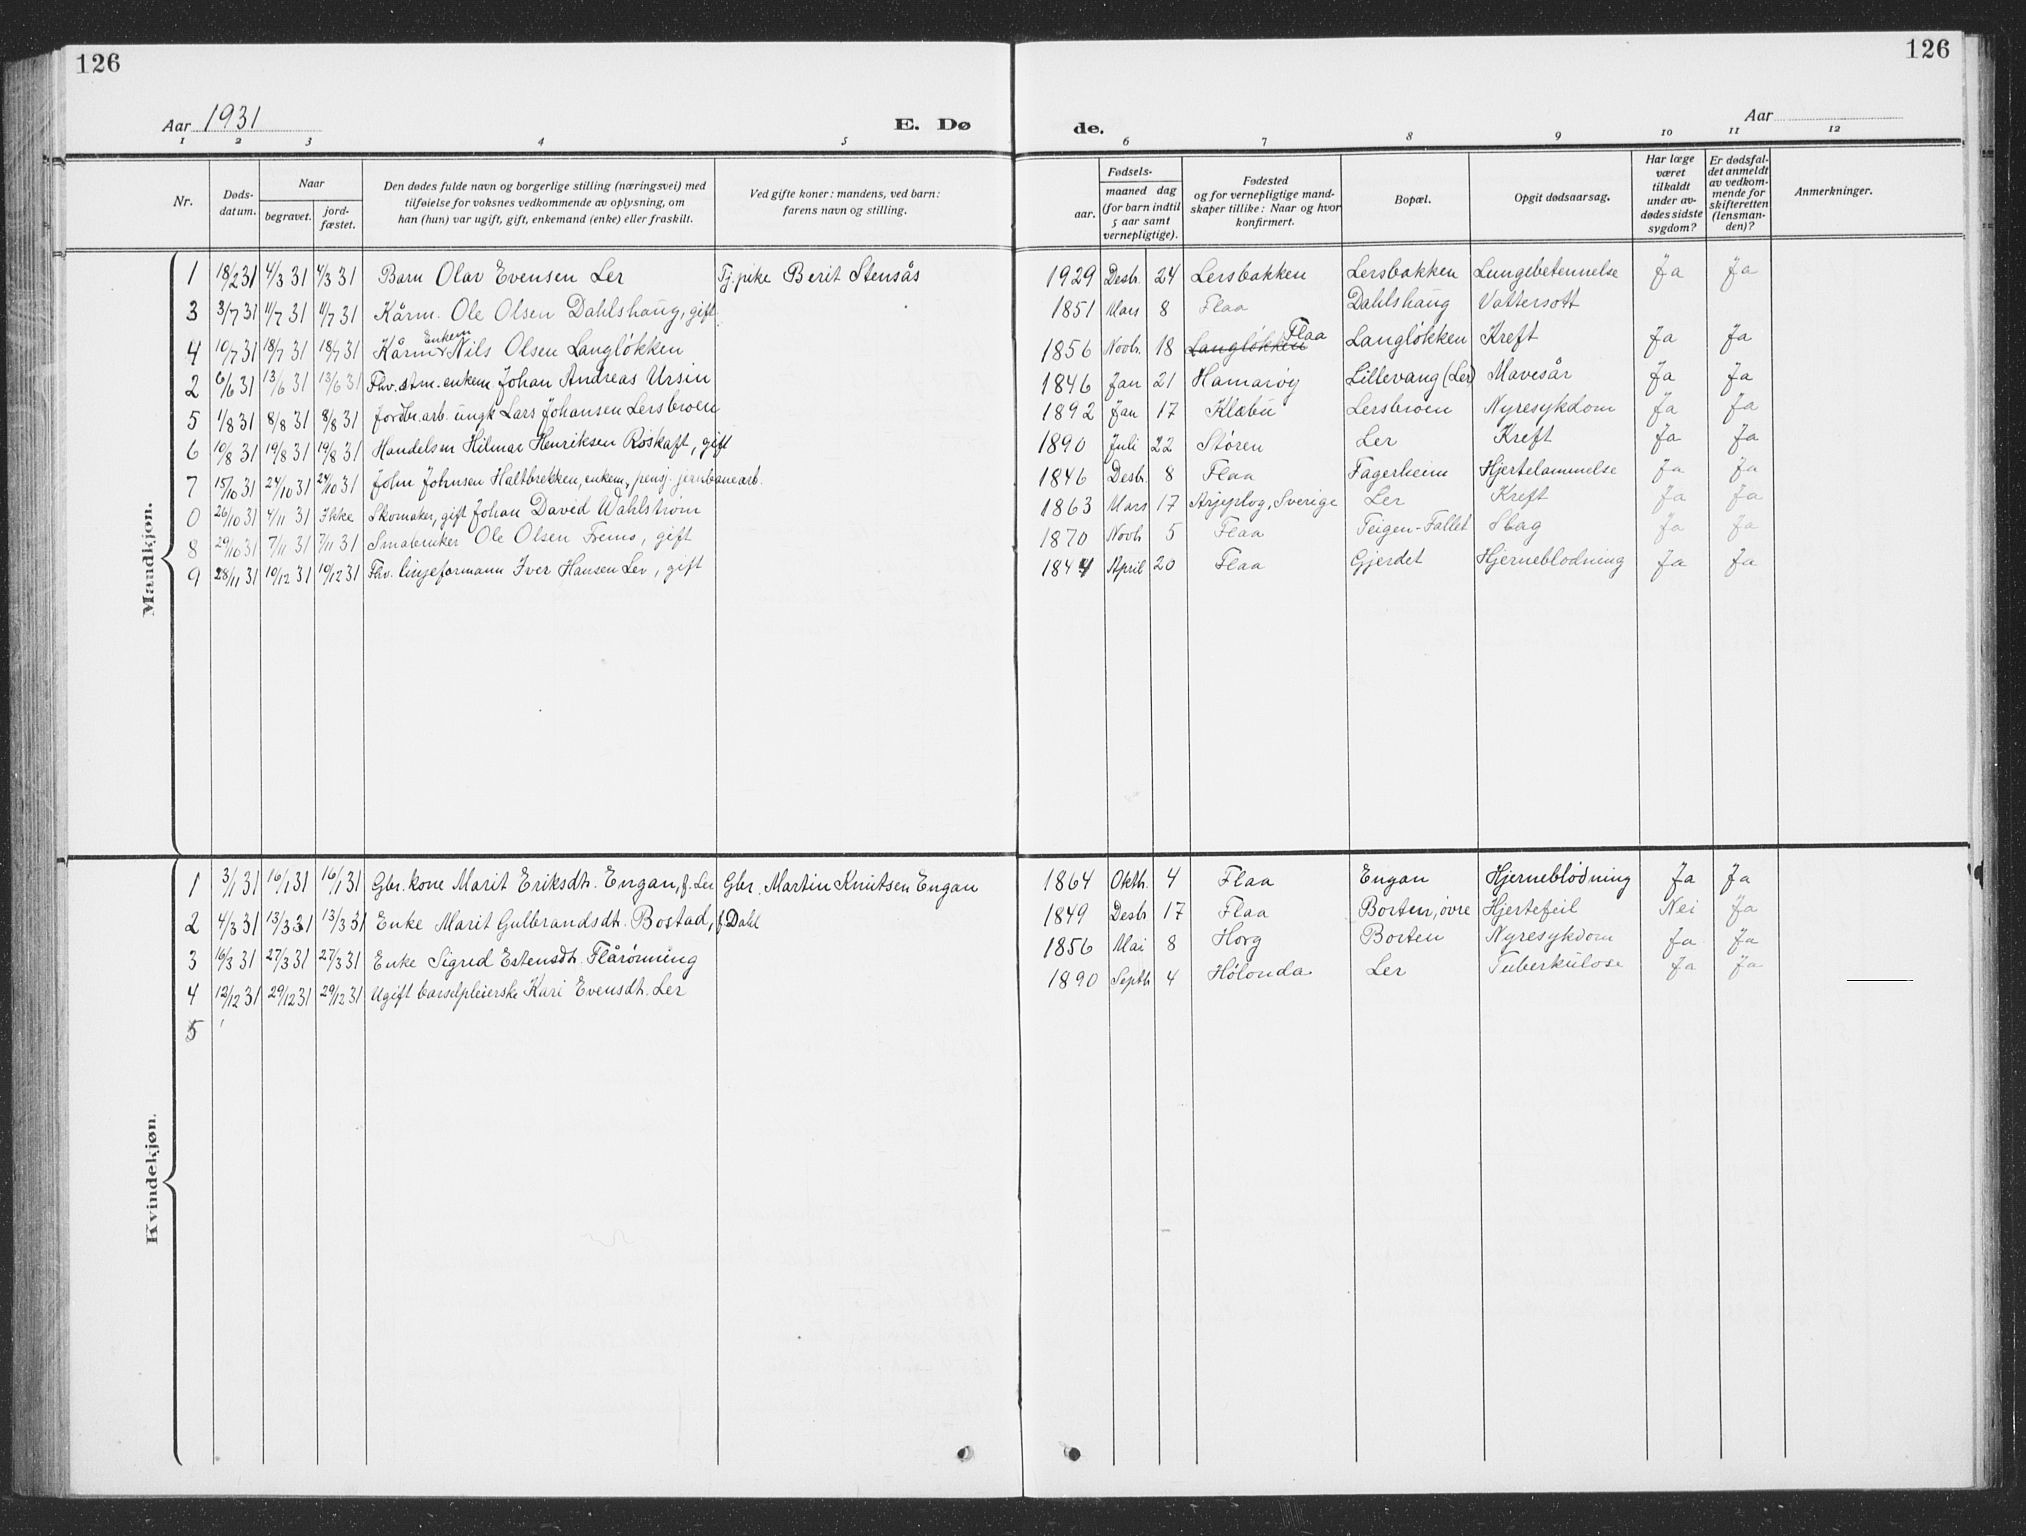 126
126
Aar 1931
E. Dø
de.
Aar
1 2 3 4 5 6 7 8 9 10 11 12
Nr.
Døds-
datum.
Naar
begravet.
jord-
fæstet.
Den dødes fulde navn og borgerlige stilling (næringsvei) med
tilføielse for voksnes vedkommende av oplysning, om
han (hun) var ugift, gift, enkemand (enke) eller fraskilt.
Ved gifte koner: mandens, ved barn:
farens navn og stilling.
Fødsels-
aar.
maaned dag
(for barn indtil
5 aar samt
vernepligtige).
Fødested
og for vernepligtige mand-
skaper tillike: Naar og hvor
konfirmert.
Bopæl.
Opgit dødsaarsag.
Har læge
været
tilkaldt
under av-
dødes sidste
sygdom?
Er dødsfal-
det anmeldt
av vedkom-
mende for
skifteretten
(lensman-
den)?
Anmerkninger.
Mandkjøn.
1 18/2 31 4/3 31 4/3 31 Barn Olav Evensen Ler Tj.pike Berit Stensås 1929 Desbr. 24 Lersbakken Lersbakken Lungebetennelse Ja Ja
3 3/7 31 11/7 31 11/7 31 Kårm. Ole Olsen Dahlshaug, gift 1851 Mars 8 Flaa Dahlshaug Vattersott
4 10/7 31 18/7 31 18/7 31 Kårm. Enkem. Nils Olsen Langløkken 1856 Novbr. 18 Langløkken Flaa Langløkken Kreft Ja Ja
2 6/6 31 13/6 31 13/6 31 Fhv. stm. enkem. Johan Andreas Ursin 1846 Jan 21 Hamarøy Lillevang (Ler) Mavesår Ja Ja
5 1/8 31 8/8 31 8/8 31 ungk Lars Johansen Lersbroen 1892 Jan 17 Klæbu Lersbroen Nyresykdom Ja Ja
6 10/8 31 19/8 31 19/8 31 Handelsm Hilmar Henriksen Røskaft, gift 1890 Juli 22 Støren Ler Kreft Ja Ja
7 15/10 31 24/10 31 24/10 31 John Johnsen Haltbrekken, enkem, pensj. jernbanearb. 1846 Desbr. 8 Flaa Fagerheim Hjertelammelse Ja Ja
0 26/10 31 4/11 31 Ikke Skomaker, gift Johan David Wahlstrøm 1863 Mars 17 Arjeplog, Sverige Ler Kreft Ja Ja
8 29/10 31 7/11 31 7/11 31 Småbruker Ole Olsen Fremo, gift 1870 Novbr 5 Flaa Teigen-Fallet Slag Ja Ja
9 28/11 31 10/12 31 10/12 31 Fhv. linjeformann Iver Hansen Ler, gift 1844 April 20 Flaa Gjerdet Hjerneblødning Ja Ja
Kvindekjøn.
1 3/1 31 16/1 31 16/1 31 Gbr. kone Marit Eriksdtr. Engan, f. Ler Gbr. Martin Knutsen Engan 1864 Oktbr. 4 Flaa Engan Hjerneblødning Ja Ja
2 4/3 31 13/3 31 13/3 31 Enke Marit Gulbrandsdtr. Bostad, f. Dahl 1849 Desbr 17 Flaa Borten, øvre Hjertefeil Nei Ja
3 16/3 31 27/3 31 27/3 31 Enke Sigrid Estensdtr. Flårønning 1856 Mai 8 Horg Borten Nyresykdom Ja Ja
4 12/12 31 29/12 31 29/12 31 Ugift barselpleierske Kari Evensdtr. Ler 1890 Septbr. 4 Hølonda Ler Tuberkulose Ja Ja
5